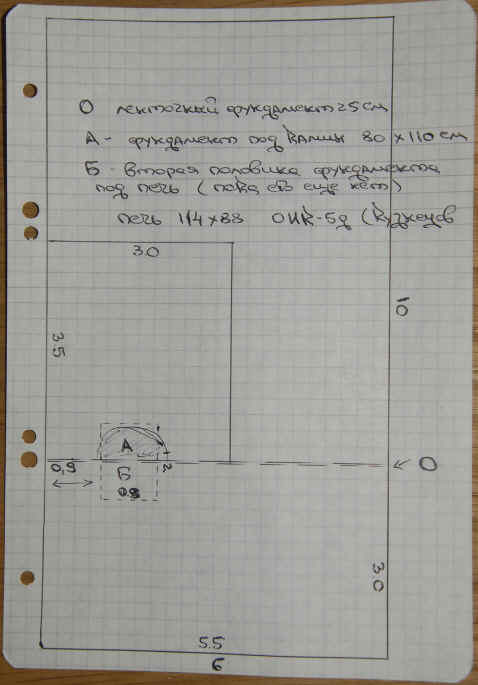 О ленточный фундамент 25 см
А - фундамент под камин 80 х 110 см
Б - вторая половинка фундамента
под печь (пока его еще нет)
печь 114х88 ОИК-5д (Кузнецов
3.0
3.5
10
А
1.2
0,9
Б
0.8
О
3.0
5.5
6